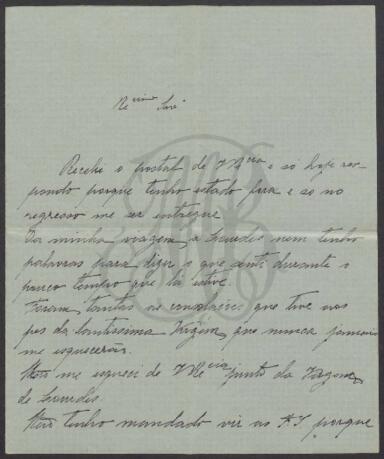 Re.mo Snr.
Recebi o postal de V Rcia e só hoje res-
pondo porque tenho estado fora e só no
regresso me ser entregue
Da minha viagem a Lourdes nem tenho
palavras para dizer o que senti durante o
pouco tempo que lá estive.
Foram tantas as consolações que tive aos
pes da Santissima Virgem, que nunca jamais
me esquecerão.
Não me esqueci de V Rcia junto da Virgem
de Lourdes.
Não tenho mandado vir as porque